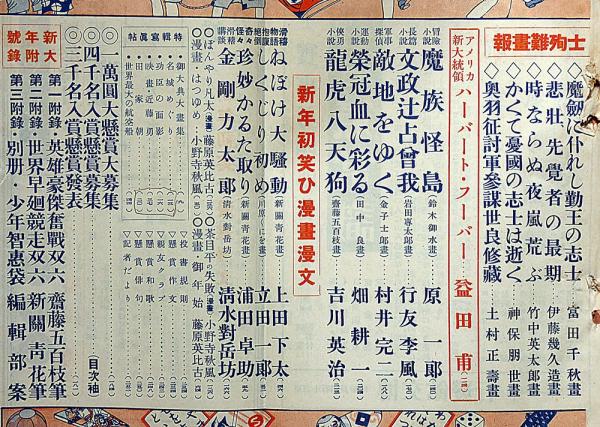 士殉難畫報
◇魔劍に仆れし勤王の志士 富田千秋畫
◇悲壯先覺者の最期 伊藤幾久造畫
◇時ならぬ夜嵐荒ぶ 竹中英太郎畫
◇かくて憂國の志士は逝く 神保朋世畫
◇奥羽征討軍參謀世良修藏 土村正壽畫
アメリカ新大統領 ハーバート・フーバー 益田甫
冒險小説 魔族怪島 鈴木御水畫 原一郎
長篇小説 文政辻占曾我 岩田專太郎畫 行友李風
軍事探偵 敵地をゆく 金子士郎畫 村井完二
運動小説 榮冠血に彩る 田中良畫 畑耕一
俠勇小説 龍虎八天狗 齋藤五百枝畫 吉川英治
新年初笑ひ漫畫漫文
滑稽物語 ねぼけ大騷動 新關青花畫 上田下太
抱腹絶倒 しくじり初め 川原くにを畫 立田一郎
怪奇 珍妙かるた取り 新關青花畫 浦田卓助
滑稽講談 金剛力太郎 清水對岳坊 清水對岳坊
◇ぼんやり凡太(漫畫) 藤原英比古 ◇茶目平の失敗(漫畫) 小野寺秋風
◇漫畫・はつゆめ 小野寺秋風 ◇漫畫御年始 藤原英比古
特輯寫眞帖
御大典大畫集
名城めぐり
功臣の面影
映畫近藤勇
日田家の朝
世界最大の航空船
▽投書規則
▽懸賞作文
▽親友クラブ
▽懸賞和歌
▽懸賞俳句
▽記者だより
◎一萬圓大懸賞大募集
◎四千名入賞懸賞大募集
◎三千名入賞懸賞發表 目次袖
新年號 大附錄
第一附錄 英雄豪傑奮戰双六 齋藤五百枝筆
第二附錄 世界早廻競走双六 新關青花筆
第三附錄 別册・少年智惠袋 編輯部案